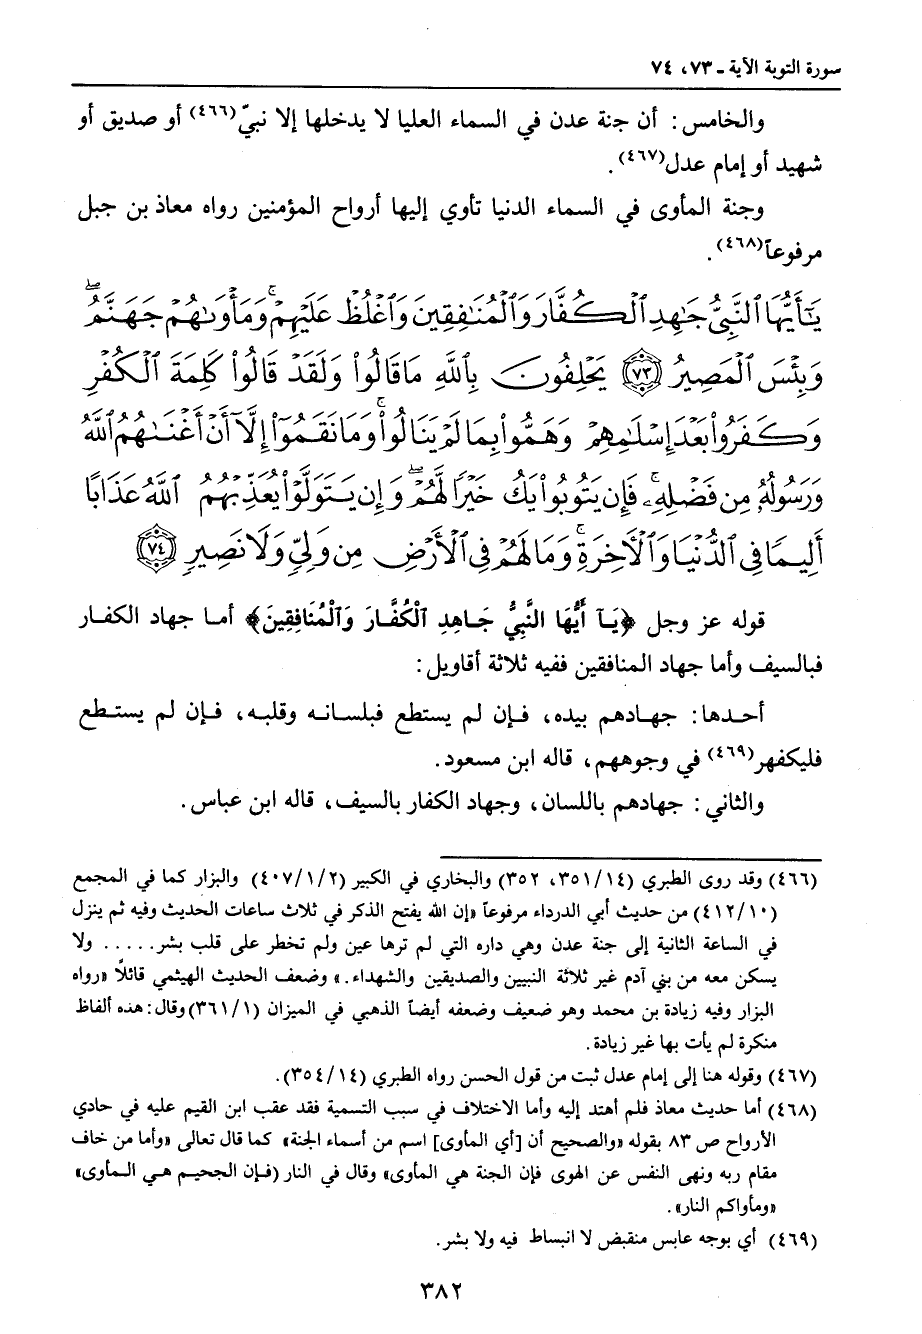 سورة التوبة الآية - ٧٣، ٧٤
والخامس: أن جنة عدن في السماء العليا لا يدخلها إلا نبيّ(٤٦٦) أو صديق أو
شهيد أو إمام عدل(٤٦٧).
وجنة المأوى في السماء الدنيا تأوي إليها أرواح المؤمنين رواه معاذ بن جبل
مرفوعاً(٤٦٨).
يَٰٓأَيُّهَا ٱلنَّبِيُّ جَٰهِدِ ٱلْكُفَّارَ وَٱلْمُنَٰفِقِينَ وَٱغْلُظْ عَلَيْهِمْ ۚ وَمَأْوَىٰهُمْ جَهَنَّمُ ۖ
وَبِئْسَ ٱلْمَصِيرُ ﴿٧٣﴾ يَحْلِفُونَ بِٱللَّهِ مَا قَالُوا۟ وَلَقَدْ قَالُوا۟ كَلِمَةَ ٱلْكُفْرِ
وَكَفَرُوا۟ بَعْدَ إِسْلَٰمِهِمْ وَهَمُّوا۟ بِمَا لَمْ يَنَالُوا۟ ۚ وَمَا نَقَمُوٓا۟ إِلَّآ أَنْ أَغْنَىٰهُمُ ٱللَّهُ
وَرَسُولُهُۥ مِن فَضْلِهِۦ ۚ فَإِن يَتُوبُوا۟ يَكُ خَيْرًا لَّهُمْ ۖ وَإِن يَتَوَلَّوْا۟ يُعَذِّبْهُمُ ٱللَّهُ عَذَابًا
أَلِيمًا فِى ٱلدُّنْيَا وَٱلْءَاخِرَةِ ۚ وَمَا لَهُمْ فِى ٱلْأَرْضِ مِن وَلِىٍّ وَلَا نَصِيرٍ ﴿٧٤﴾
قوله عز وجل ﴿يَـآ أَيُّهَا النَّبِيُّ جَاهِدِ ٱلْكُفَّارَ وَٱلْمُنَافِقِينَ﴾ أما جهاد الكفار
فبالسيف وأما جهاد المنافقين ففيه ثلاثة أقاويل:
أحدها: جهادهم بيده، فإن لم يستطع فبلسانه وقلبه، فإن لم يستطع
فليكفهر(٤٦٩) في وجوههم، قاله ابن مسعود.
والثاني: جهادهم باللسان، وجهاد الكفار بالسيف، قاله ابن عباس.
(٤٦٦) وقد روى الطبري (٣٥١/١٤، ٣٥٢) والبخاري في الكبير (٤٠٧/١/٢) والبزار كما في المجمع
(٤١٢/١٠) من حديث أبي الدرداء مرفوعاً «إن الله يفتح الذكر في ثلاث ساعات الحديث وفيه ثم ينزل
في الساعة الثانية إلى جنة عدن وهي داره التي لم ترها عين ولم تخطر على قلب بشر..... ولا
يسكن معه من بني آدم غير ثلاثة النبيين والصديقين والشهداء.» وضعف الحديث الهيثمي قائلاً «رواه
البزار وفيه زيادة بن محمد وهو ضعيف وضعفه أيضاً الذهبي في الميزان (٣٦١/١) وقال: هذه ألفاظ
منكرة لم يأت بها غير زيادة.
(٤٦٧) وقوله هنا إلى إمام عدل ثبت من قول الحسن رواه الطبري (٣٥٤/١٤).
(٤٦٨) أما حديث معاذ فلم أهتد إليه وأما الاختلاف في سبب التسمية فقد عقب ابن القيم عليه في حادي
الأرواح ص ٨٣ بقوله «والصحيح أن [أي المأوى] اسم من أسماء الجنة» كما قال تعالى «وأما من خاف
مقام ربه ونهى النفس عن الهوى فإن الجنة هي المأوى» وقال في النار (فإن الجحيم هي المأوى»
«ومأواكم النار».
(٤٦٩) أي بوجه عابس منقبض لا انبساط فيه ولا بشر.
٣٨٢